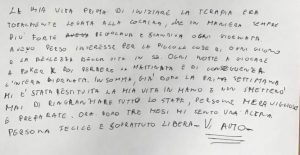 LA MIA VITA PRIMA DI INIZIARE LA TERAPIA ERA
TOTALMENTE LEGATA ALLA COCAINA, CHE IN MANIERA SEMPRE
PIU FORTE REGOLAVA E SCANDIVA OGNI GIORNATA
AVEVO PERSO INTERESSE PER LE PICCOLE COSE DI OGNI GIORNO
E LA BELLEZZA DELLA VITA IN SE. OGNI NOTTE A GIOCARE
A POKER E POI DORMIRE LA MATTINATA E DI CONSEGUENZA
L'INTERA GIORNATA. INSOMMA, GIÀ DOPO LA PRIMA SETTIMANA
MI È STATA RESTITUITA LA MIA VITA IN MANO E NON SMETTERÒ
MAI DI RINGRAZIARE TUTTO LO STAFF, PERSONE MERAVIGLIOSE
E PREPARATE. ORA DOPO TRE MESI MI SENTO UNA
PERSONA FELICE E SOPRATTUTTO LIBERA. VI AMO.